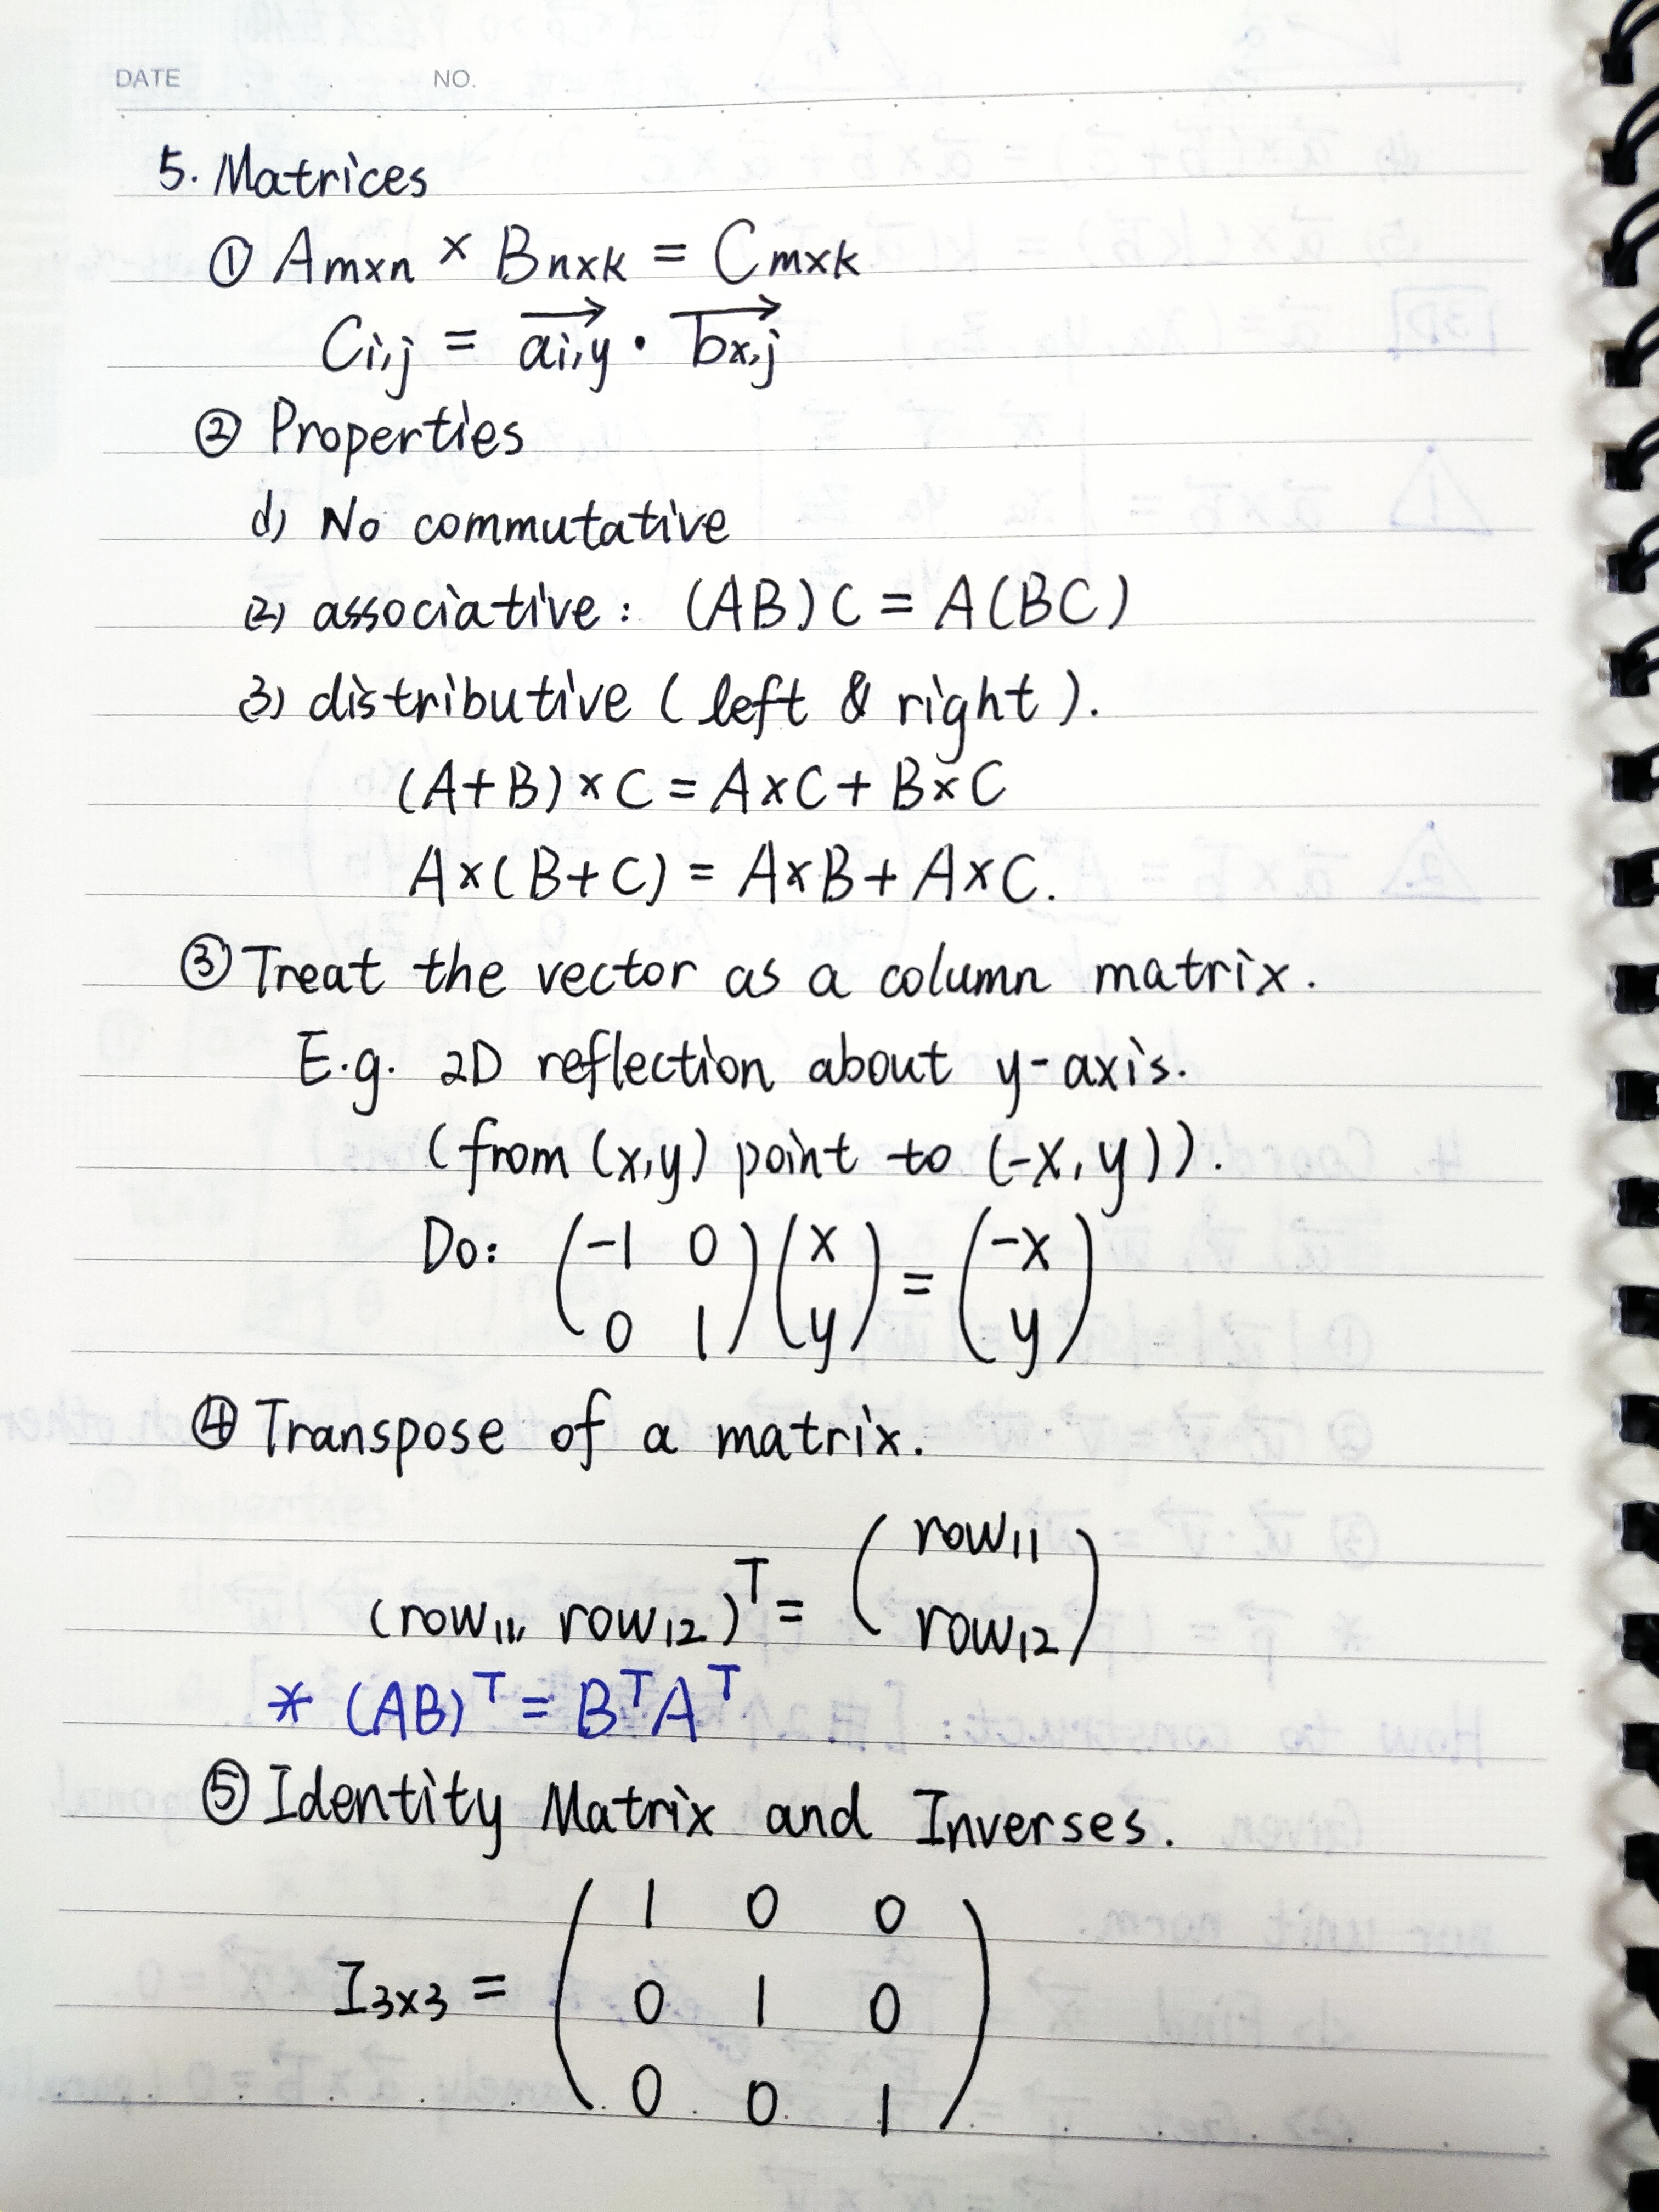 DATE NO.
5. Matrices
① Amxn × Bnxk = Cmxk
Ci,j = ai,y · bx,j
② Properties
(1) No commutative
(2) associative: (AB)C = A(BC)
(3) distributive (left & right).
(A+B)×C = A×C + B×C
A×(B+C) = A×B + A×C.
③ Treat the vector as a column matrix.
E.g. 2D reflection about y-axis.
(from (x,y) point to (-x,y)).
Do: (-1 0) (x) = (-x)
(0 1) (y) (y)
④ Transpose of a matrix.
(row11, row12)ᵀ = (row11
row12)
* (AB)ᵀ = BᵀAᵀ
⑤ Identity Matrix and Inverses.
1 0 0
I3x3 = 0 1 0
0 0 1